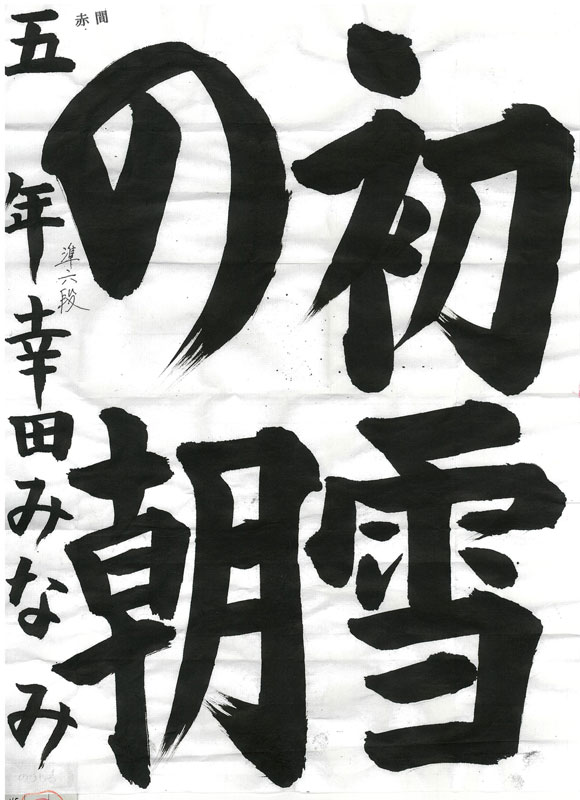 初雪
の朝
五年幸田みなみ
準六段
赤間